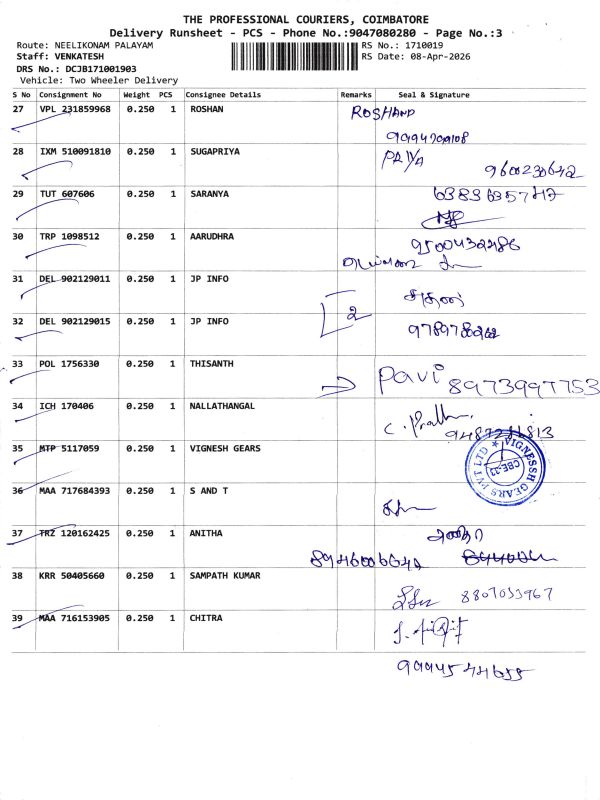 THE PROFESSIONAL COURIERS, COIMBATORE
Delivery Runsheet - PCS - Phone No.:9047080280 - Page No.:3
Route: NEELIKONAM PALAYAM
RS No.: 1710019
Staff: VENKATESH
RS Date: 08-Apr-2026
DRS No.: DCJB171001903
Vehicle: Two Wheeler Delivery
S No Consignment No Weight PCS Consignee Details Remarks Seal & Signature
27 VPL 231859968 0.250 1 ROSHAN ROSHAND
28 IXM 510091810 0.250 1 SUGAPRIYA PRIYA
29 TUT 607606 0.250 1 SARANYA
30 TRP 1098512 0.250 1 AARUDHRA
31 DEL 902129011 0.250 1 JP INFO
2
32 DEL 902129015 0.250 1 JP INFO
33 POL 1756330 0.250 1 THISANTH Pavi 8973997753
34 ICH 170406 0.250 1 NALLATHANGAL
35 MTP 5117059 0.250 1 VIGNESH GEARS
VIGNESSH GEARS PVT LTD
CBE-33
36 MAA 717684393 0.250 1 S AND T
37 TRZ 120162425 0.250 1 ANITHA
38 KRR 50405660 0.250 1 SAMPATH KUMAR
8807033967
39 MAA 716153905 0.250 1 CHITRA